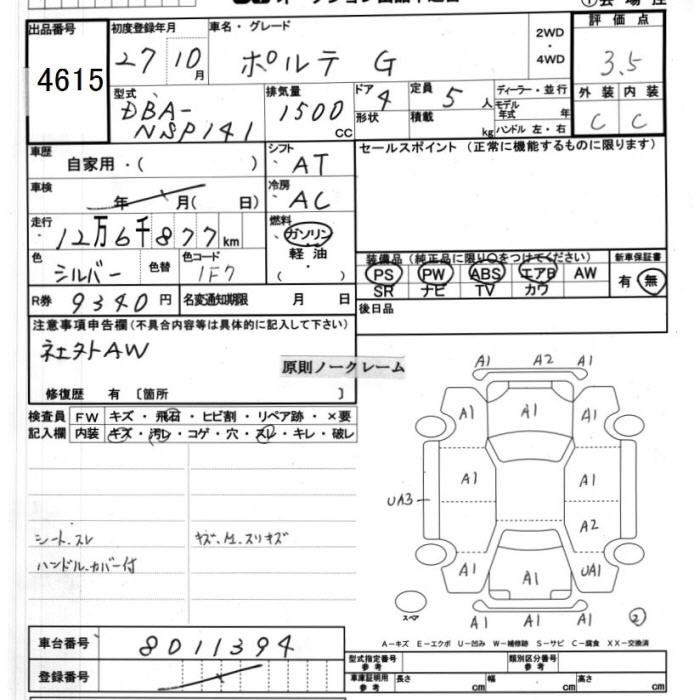 出品番号
4615
初度登録年月
27 10月
車名・グレード
ポルテ G
2WD
・
4WD
評価点
3.5
外装 内装
C C
型式
DBA-
NSP141
排気量
1500
CC
ドア 4
形状
定員 5 人
積載 kg
ディーラー・並行
モデル年式 年
ハンドル 左・右
車歴
自家用・( )
シフト
AT
セールスポイント (正常に機能するものに限ります)
車検
年 月( 日)
冷房
AC
走行
12万6千877km
燃料
ガソリン
軽油
・
色
シルバー
色替
色コード
1F7
装備品 (純正品に限り○をつけてください)
PS PW ABS エアB AW
SR ナビ TV カワ
新車保証書
有・無
R券 9340円
名変通知期限 月 日
後日品
注意事項申告欄 (不具合内容等は具体的に記入して下さい)
社外AW
原則ノークレーム
修復歴 有 〔箇所 〕
検査員
記入欄
FW キズ・飛石・ヒビ割・リペア跡・×要
内装 キズ・汚レ・コゲ・穴・スレ・キレ・破レ
シート.スレ
ハンドル.カバー付
A1 A2 A1
A1 A1 A1
UA3 A1 A1
A2
A1 A1 UA1
A1 A1 A1
スペア
2
A－キズ E－エクボ U－凹み W－補修跡 S－サビ C－腐食 XX－交換済
車台番号
8011394
登録番号
型式指定番号
参考
類別区分番号
参考
車庫証明用
参考
長さ cm
幅 cm
高さ cm